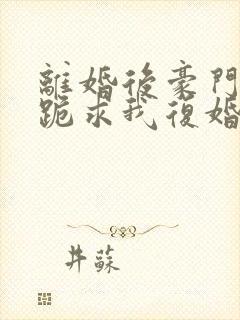 離婚後豪門
跪求我復婚
井蘇